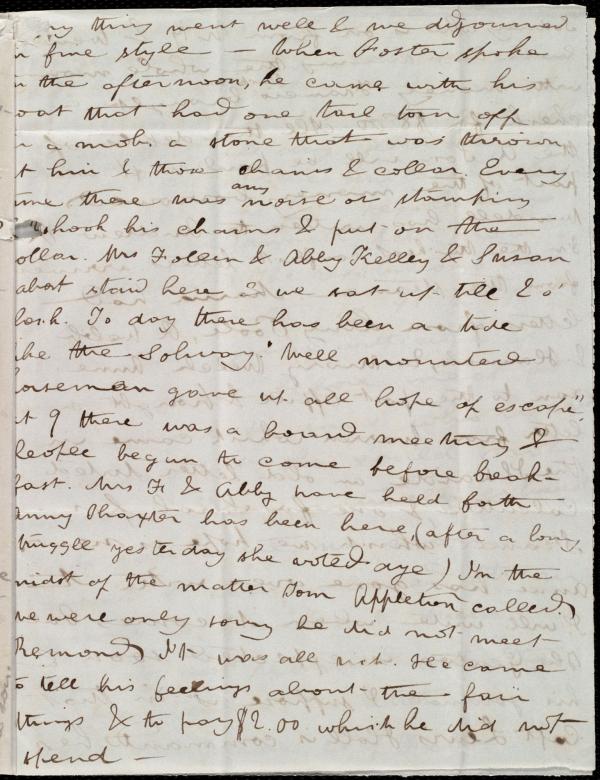 ry thing went well & we adjourned
n fine style — When Foster spoke
n the afternoon, he came with his
oat that had one tail torn off
n a mob. a stone that was thrown
t him & those chains & collar. Every
me there was any noise or stamping
shook his chains & put on the
ollar. Mrs Follen & Abby Kelley & Susan
abot staid here & we sat up till 2 o'
lock. To day there has been a tide
ike the Solway." Well mounted
orseman gave up all hope of escape".
t 9 there was a board meeting &
people begun to come before break-
fast. Mrs F & Abby have held forth
anny Thaxter has been here, (after a long
truggle yesterday she voted aye) In the
midst of the matter Tom Appleton called,
we were only sorry he did not meet
Remond, It was all right. He came
o tell his feelings about the fair
things & to pay $2.00 which he did not
spend —